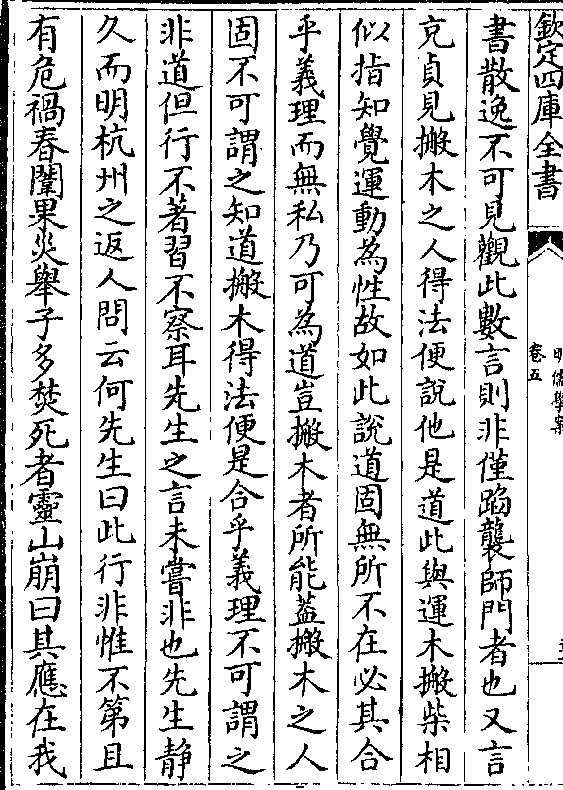 欽定四庫全書
明儒學案
卷五
書散逸不可見觀此數言則非僅蹈襲師門者也又言
克貞見搬木之人得法便說他是道此與運水搬柴相
似指知覺運動為性故如此說道固無所不在必其合
乎義理而無私乃可為道豈搬木者所能蓋搬木之人
固不可謂之知道搬木得法便是合乎義理不可謂之
非道但行不著習不察耳先生之言未嘗非也先生静
久而明杭州之返人問云何先生曰此行非惟不第且
有危禍春闈果災舉子多焚死者靈山崩曰其應在我